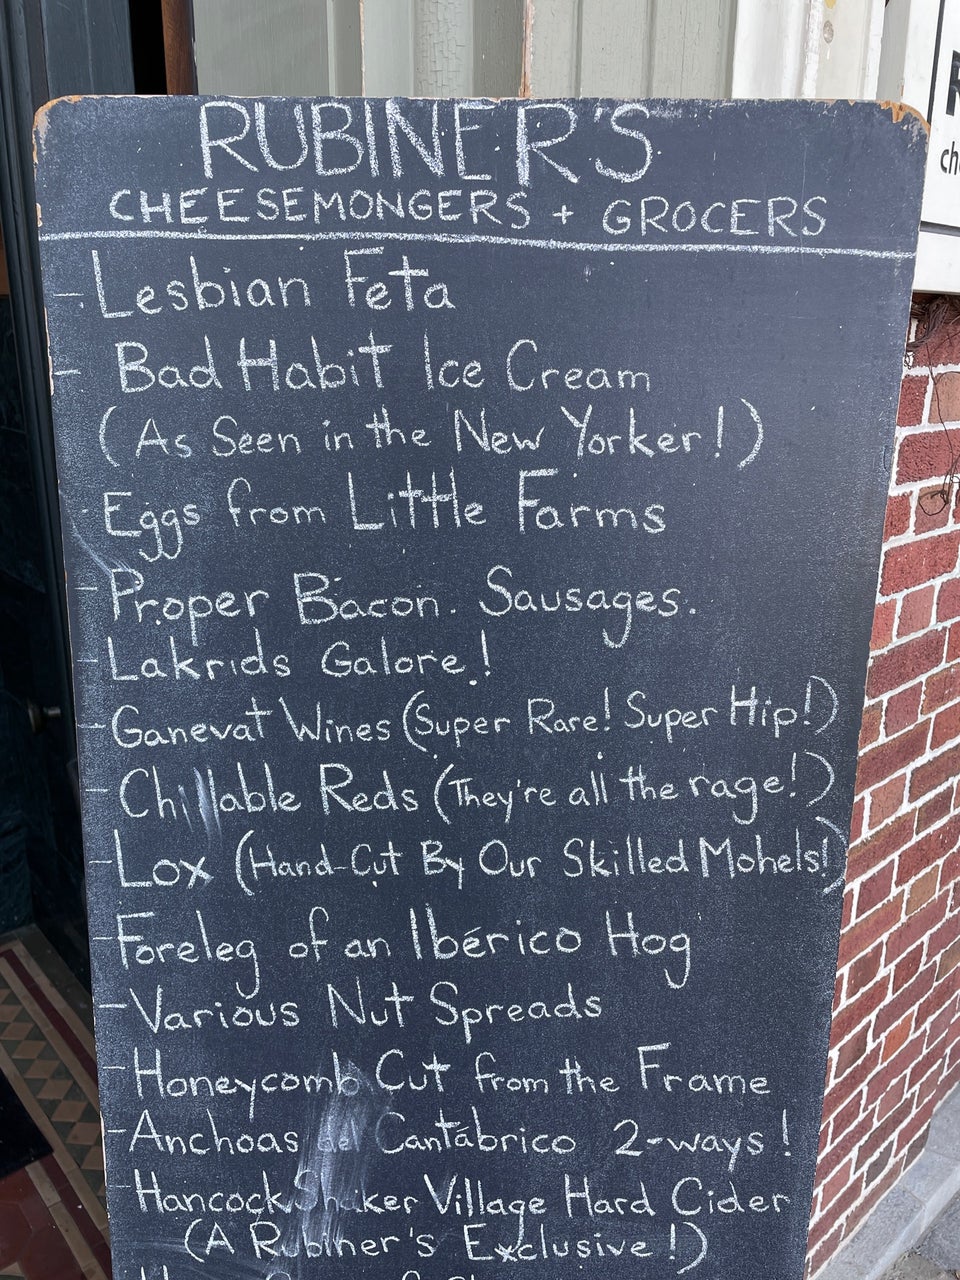 RUBINER'S
CHEESEMONGERS + GROCERS
- Lesbian Feta
- Bad Habit Ice Cream
(As Seen in the New Yorker!)
- Eggs from Little Farms
- Proper Bacon. Sausages.
- Lakrids Galore!
- Ganevat Wines (Super Rare! Super Hip!)
- Chillable Reds (They're all the rage!)
- Lox (Hand-Cut By Our Skilled Mohels!)
- Foreleg of an Ibérico Hog
- Various Nut Spreads
- Honeycomb Cut from the Frame
- Anchoas del Cantábrico 2-ways!
- Hancock Shaker Village Hard Cider
(A Rubiner's Exclusive!)